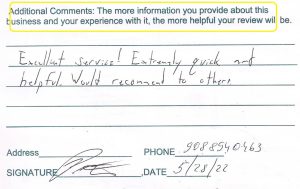 Additional Comments: The more information you provide about this
business and your experience with it, the more helpful your review will be.
Excellent service! Extremely quick and
helpful. Would recommend to others.
Address PHONE 9088940463
SIGNATURE ,DATE 5/28/22